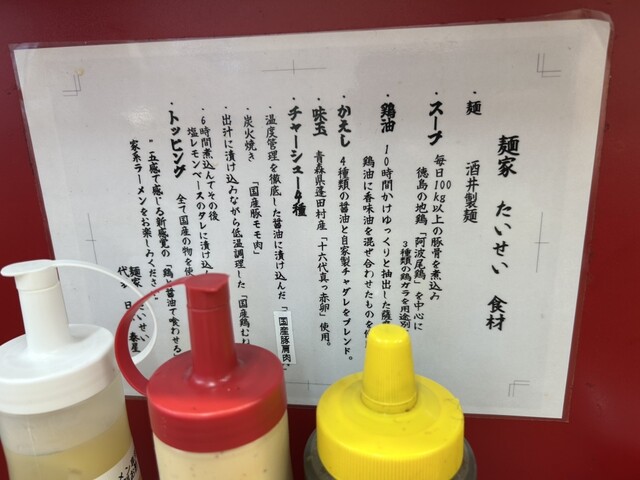 麺家 たいせい 食材
・麺 酒井製麺
・スープ 毎日100kg以上の豚骨を煮込み
徳島の地鶏「阿波尾鶏」を中心に
3種類の鶏ガラを用途別
・鶏油 10時間かけゆっくりと抽出した
鶏油に香味油を混ぜ合わせたものを
・かえし 4種類の醤油と自家製チャダレをブレンド。
・味玉 青森県蓬田村産「十六代真っ赤卵」使用。
・チャーシュー4種
・温度管理を徹底した醤油に漬け込んだ「国産豚肩肉」
・炭火焼き 「国産豚モモ肉」
・出汁に漬け込みながら低温調理した「国産鶏むね
・6時間煮込んでその後
塩レモンベースのタレに漬け込
・トッピング 全て国産の物を使
"五感で感じる新感覚の「鶏と醤油で喰わせる」
家系ラーメンをお楽しみください"
麺家 たいせい
代表
メン